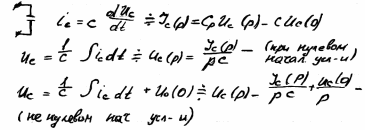 i_c = c dU_c/dt ≑ I_c(p) = C_p U_c(p) - C U_c(0)
u_c = 1/c ∫ i_c dt ≑ u_c(p) = I_c(p)/pc - (при нулевом начал. усл-и)
u_c = 1/c ∫ i_c dt + u_0(0) ≑ u_c(p) - I_c(p)/pc + u_c(0)/p -
(не нулевом нач усл-и)